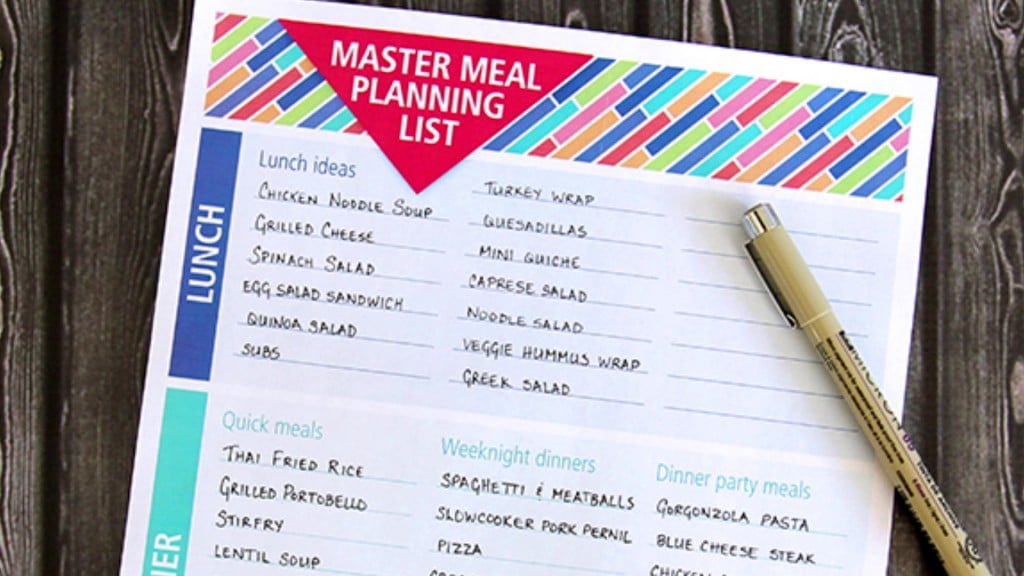 MASTER MEAL
PLANNING
LIST
LUNCH
Lunch ideas
CHICKEN NOODLE SOUP
GRILLED CHEESE
SPINACH SALAD
EGG SALAD SANDWICH
QUINOA SALAD
SUBS
TURKEY WRAP
QUESADILLAS
MINI QUICHE
CAPRESE SALAD
NOODLE SALAD
VEGGIE HUMMUS WRAP
GREEK SALAD
Quick meals
THAI FRIED RICE
GRILLED PORTOBELLO
STIRFRY
LENTIL SOUP
Weeknight dinners
SPAGHETTI & MEATBALLS
SLOWCOOKER PORK PERNIL
PIZZA
Dinner party meals
GORGONZOLA PASTA
BLUE CHEESE STEAK